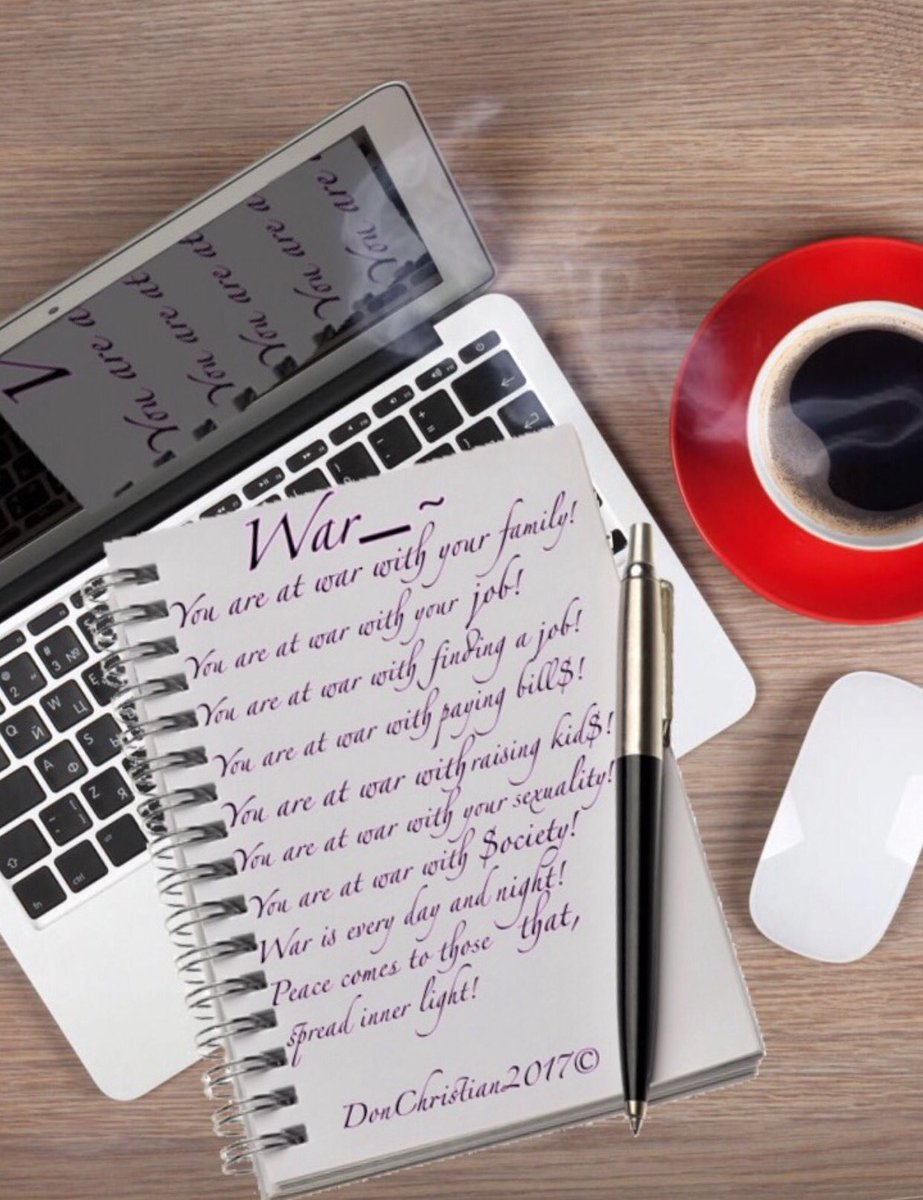 War_~
You are at war with your family!
You are at war with your job!
You are at war with finding a job!
You are at war with paying bill$!
You are at war with raising kid$!
You are at war with your sexuality!
You are at war with $ociety!
War is every day and night!
Peace comes to those that,
spread inner light!
DonChristian2017©